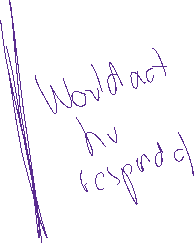 Would act
hv
respond d